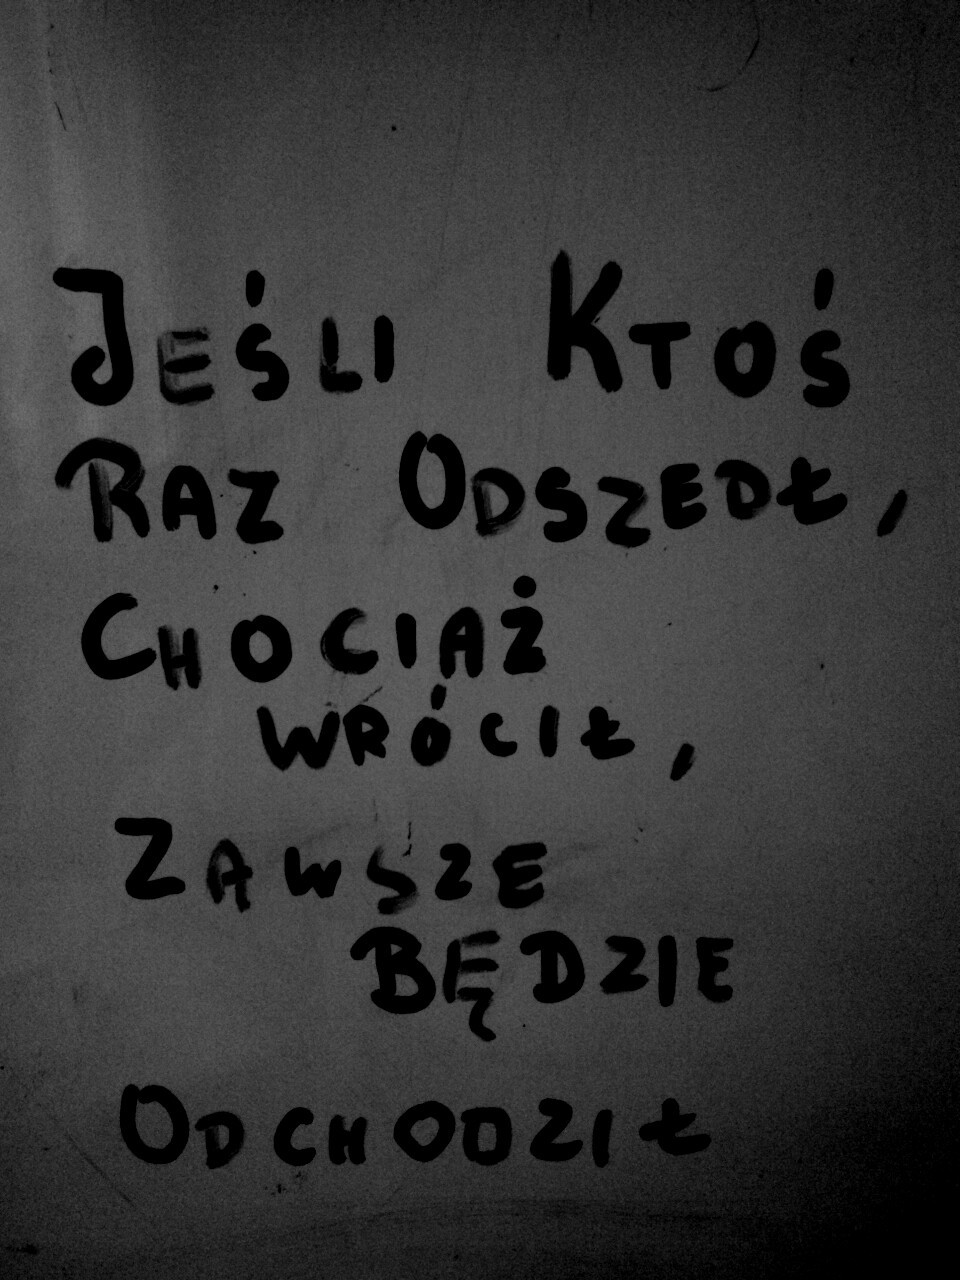 JEŚLI KTOŚ
RAZ ODSZEDŁ,
CHOCIAŻ
WRÓCIŁ,
ZAWSZE
BĘDZIE
ODCHODZIŁ